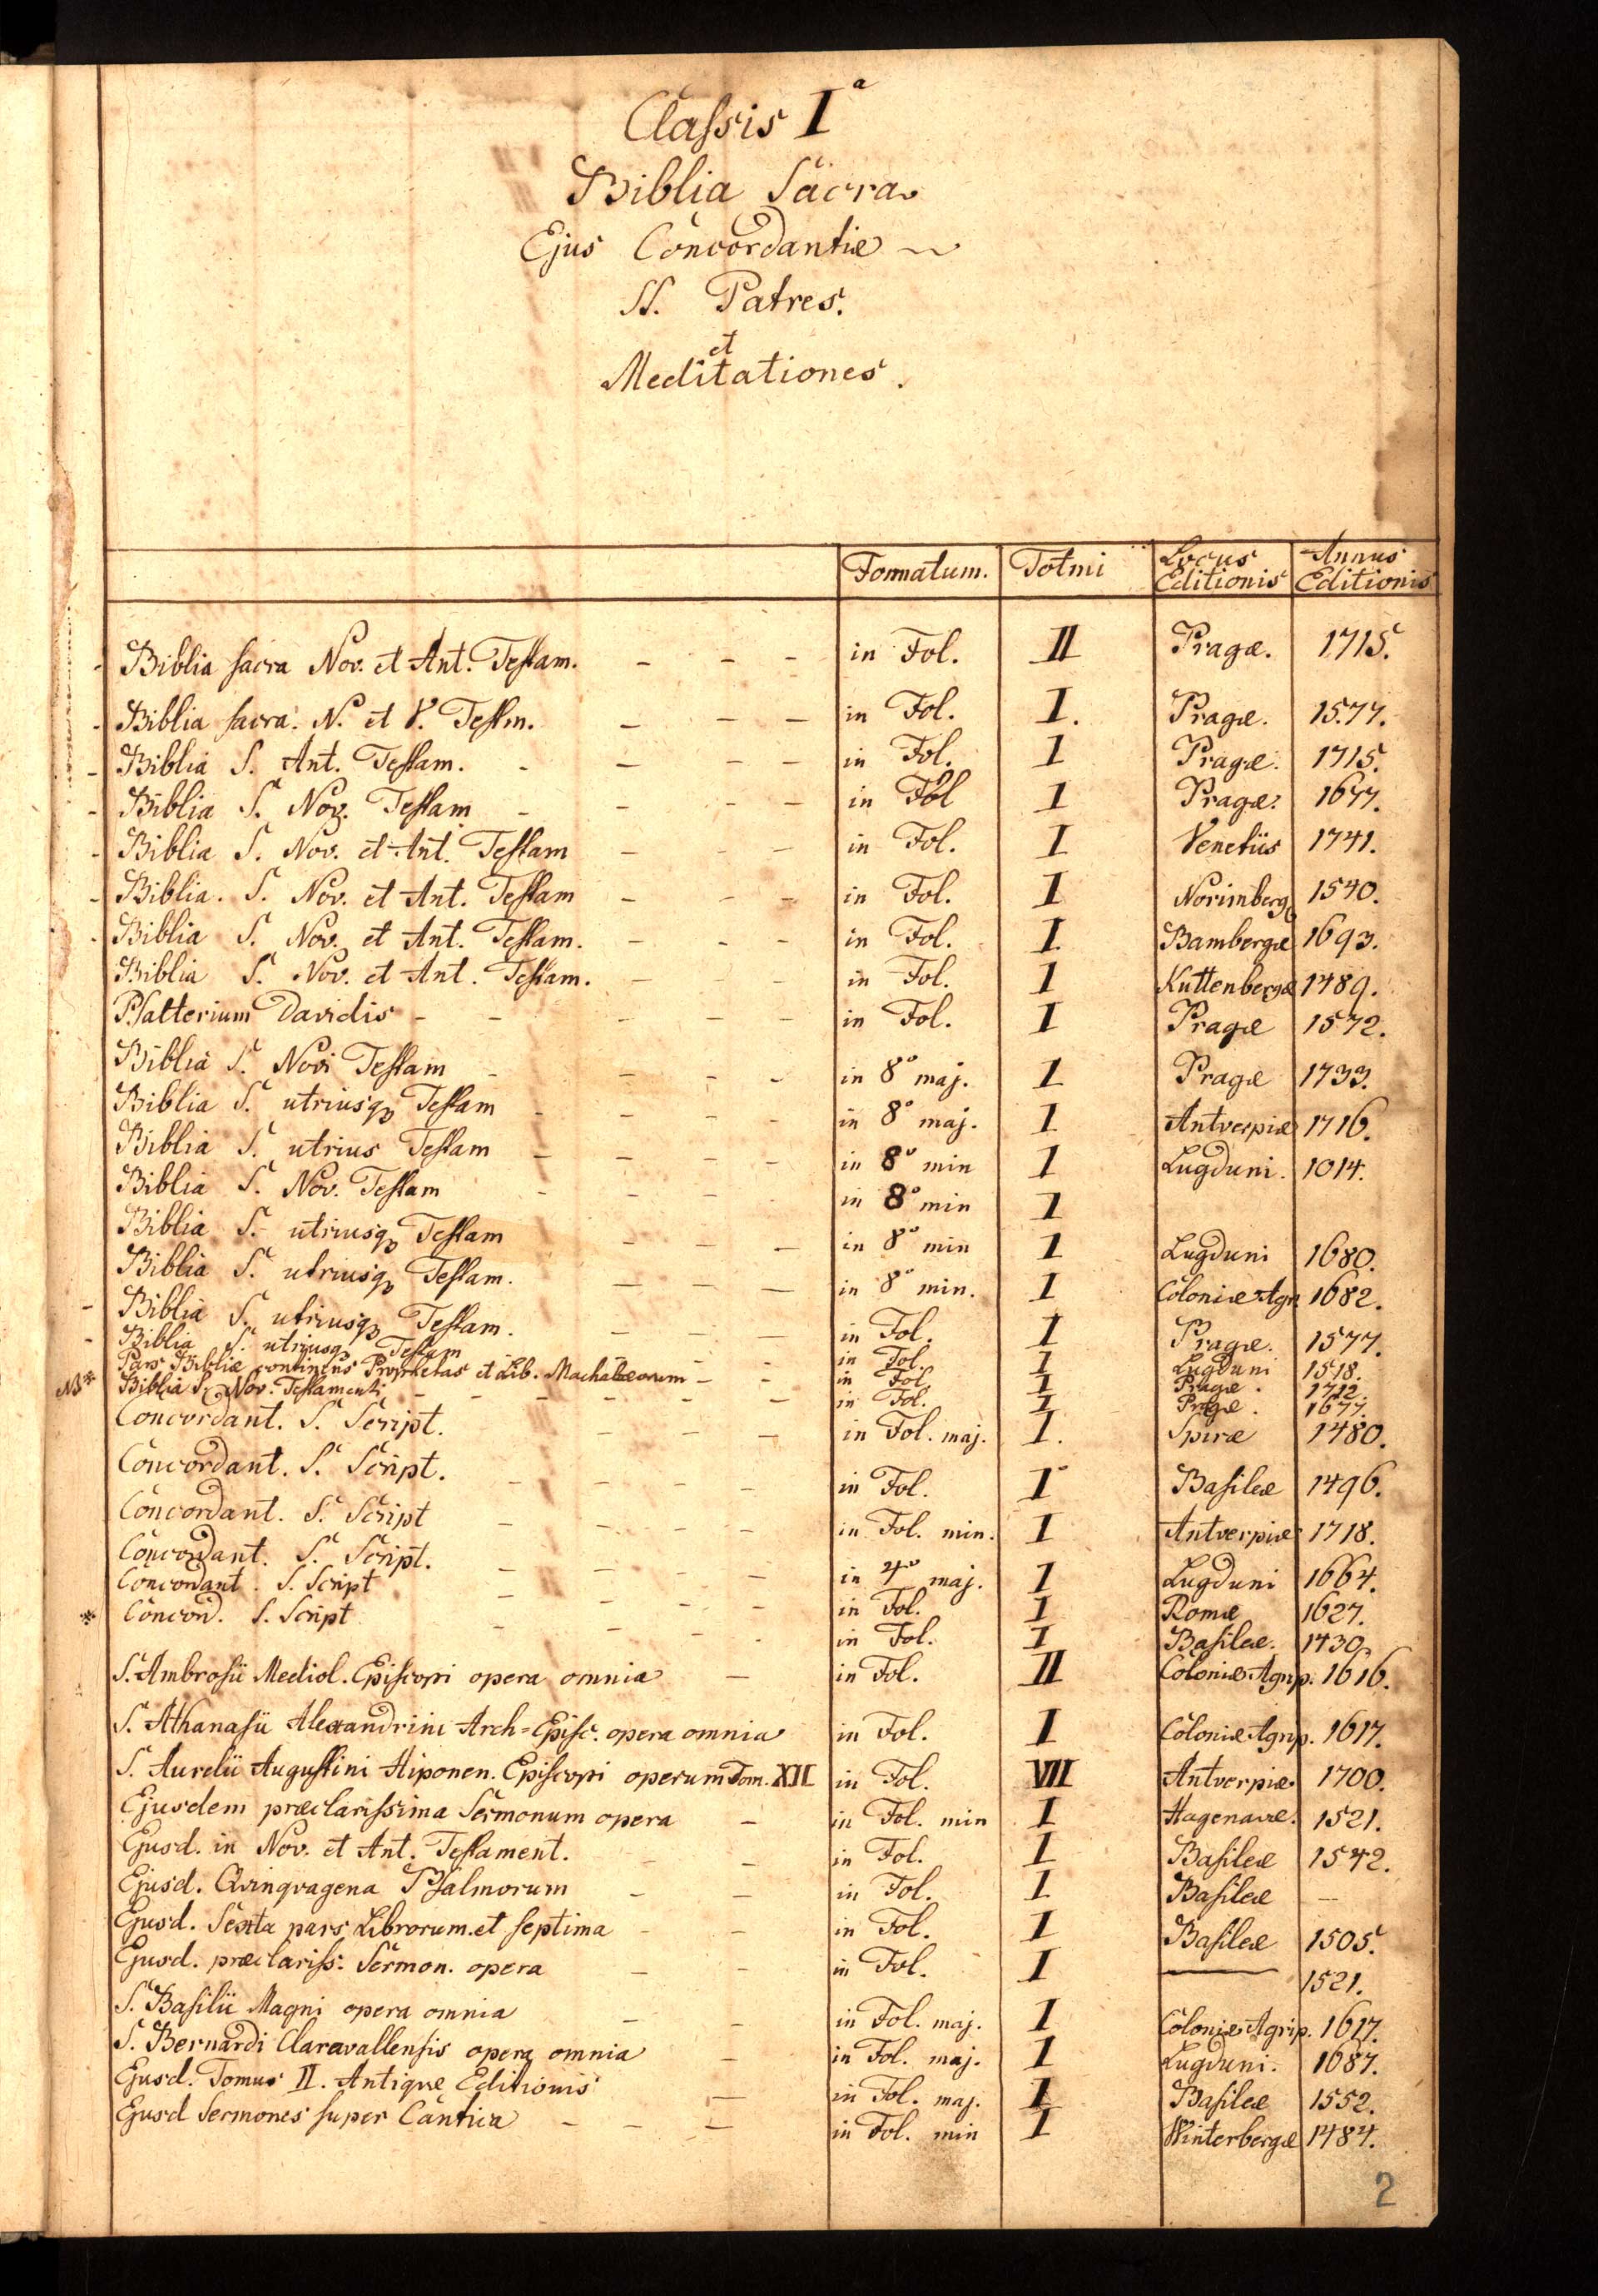 Classis I a
Biblia Sacra
Ejus Concordantiæ
SS. Patres.
et
Meditationes.
Formatum. Tommi Locus Editionis Annus Editionis
Biblia sacra Nov. et Ant. Testam. - - - in Fol. II Pragæ. 1715.
Biblia sacra. N. et V. Testm. - - - in Fol. I. Pragæ. 1577.
Biblia S. Ant. Testam. - - - - in Fol. I Pragæ. 1715.
Biblia S. Nov. Testam - - - - in Fol I Pragæ. 1677.
Biblia S. Nov. et Ant. Testam - - - in Fol. I Venetiis 1741.
Biblia. S. Nov. et Ant. Testam - - - in Fol. I Norimberg 1540.
Biblia S. Nov. et Ant. Testam. - - - in Fol. I Bambergæ 1693.
Biblia S. Nov. et Ant. Testam. - - - in Fol. I Kuttenbergæ 1489.
Psalterium Davidis - - - - - in Fol. I Pragæ 1572.
Biblia S. Novi Testam - - - - in 8º maj. I Pragæ 1733.
Biblia S. utriusq Testam - - - - in 8º maj. I Antverpiæ 1716.
Biblia S. utrius Testam - - - - in 8º min I Lugduni. 1014.
Biblia S. Nov. Testam - - - - in 8º min I
Biblia S. utriusq Testam - - - in 8º min I Lugduni 1680.
Biblia S. utriusq Testam. - - - in 8º min. I Coloniæ Agr 1682.
Biblia S. utriusq Testam. - - - in Fol. I Pragæ. 1577.
Biblia S. utriusq Testam - - - in Fol. I Lugduni 1518.
Pars Bibliæ continens Prophetas et Lib. Machabæorum - - in Fol. I Pragæ. 1712.
NB* Biblia S. Nov. Testamenti - - - - - in Fol. I Pragæ. 1677.
Concordant. S. Script. - - - in Fol. maj. I. Spiræ 1480.
Concordant. S. Script. - - - - in Fol. I Basileæ 1496.
Concordant. S. Script - - - - in Fol. min. I Antverpiæ 1718.
Concordant. S. Script. - - - - in 4º maj. I Lugduni 1664.
Concordant. S. Script - - - - in Fol. I Romæ 1627.
* Concord. S. Script - - - - in Fol. I Basileæ. 1430.
S. Ambrosii Mediol. Episcopi opera omnia - in Fol. II Coloniæ Agrip. 1616.
S. Athanasii Alexandrini Arch=Episc. opera omnia in Fol. I Coloniæ Agrip. 1617.
S. Aurelii Augustini Hiponen. Episcopi operum Tom. XII in Fol. VII Antverpiæ 1700.
Ejusdem præclarissima Sermonum opera - in Fol. min I Hagenaviæ. 1521.
Ejusd. in Nov. et Ant. Testament. - - in Fol. I Basileæ 1542.
Ejusd. Qvinqvagena Psalmorum - - in Fol. I Basileæ -
Ejusd. Sexta pars Librorum et septima - - in Fol. I Basileæ 1505.
Ejusd. præclariss. Sermon. opera - - in Fol. I — 1521.
S. Basilii Magni opera omnia - - in Fol. maj. I Coloniæ Agrip. 1617.
S. Bernardi Claravallensis opera omnia - in Fol. maj. I Lugduni. 1687.
Ejusd. Tomus II. Antiquæ Editionis - in Fol. maj. I Basileæ 1552.
Ejusd Sermones super Cantica - - - in Fol. min I Winterbergæ 1484.
2